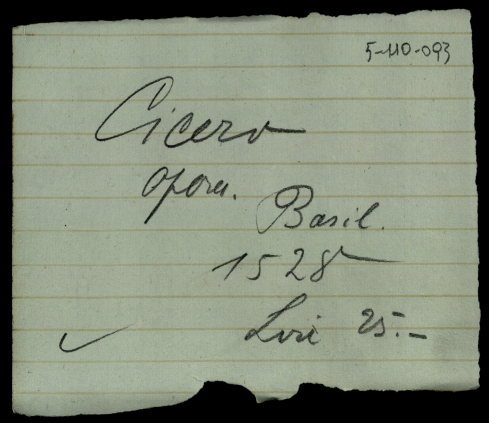 5-110-093
Cicero
opera.
Basil.
1528
Lire 25.-